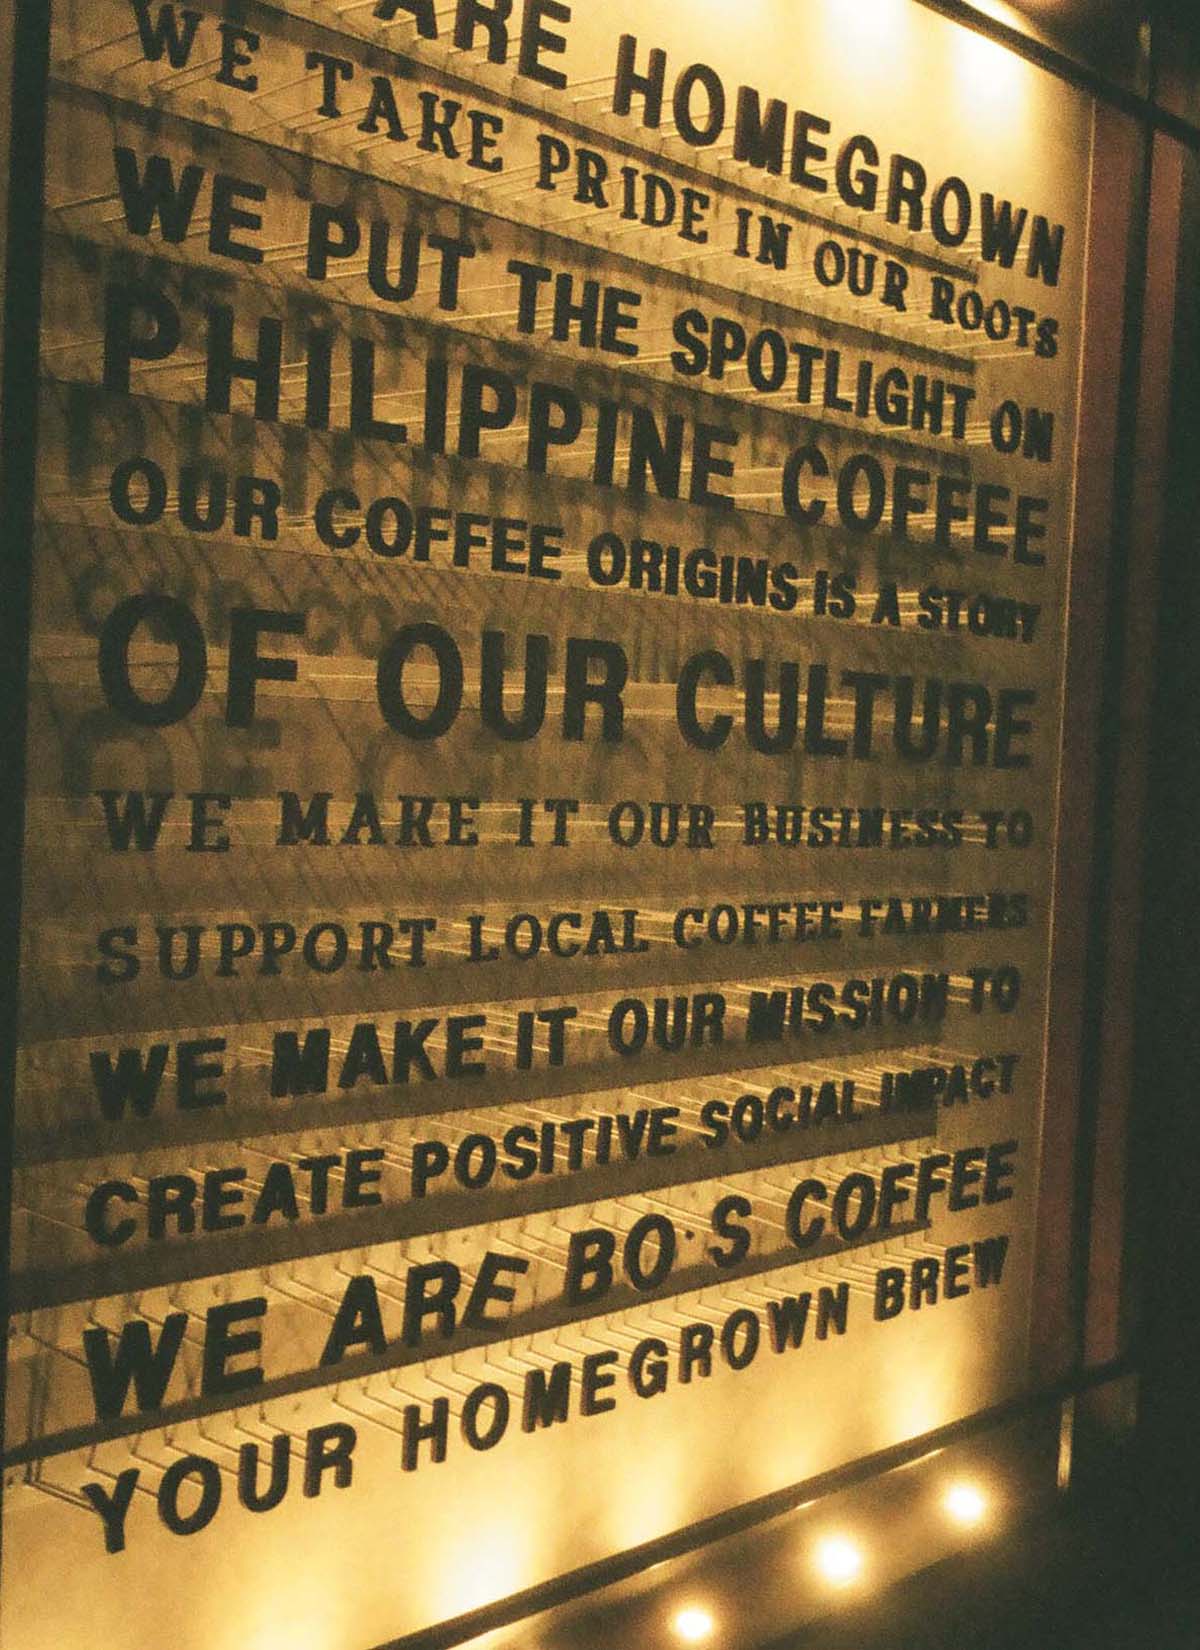 ARE HOMEGROWN
WE TAKE PRIDE IN OUR ROOTS
WE PUT THE SPOTLIGHT ON
PHILIPPINE COFFEE
OUR COFFEE ORIGINS IS A STORY
OF OUR CULTURE
WE MAKE IT OUR BUSINESS TO
SUPPORT LOCAL COFFEE FARMERS
WE MAKE IT OUR MISSION TO
CREATE POSITIVE SOCIAL IMPACT
WE ARE BO'S COFFEE
YOUR HOMEGROWN BREW